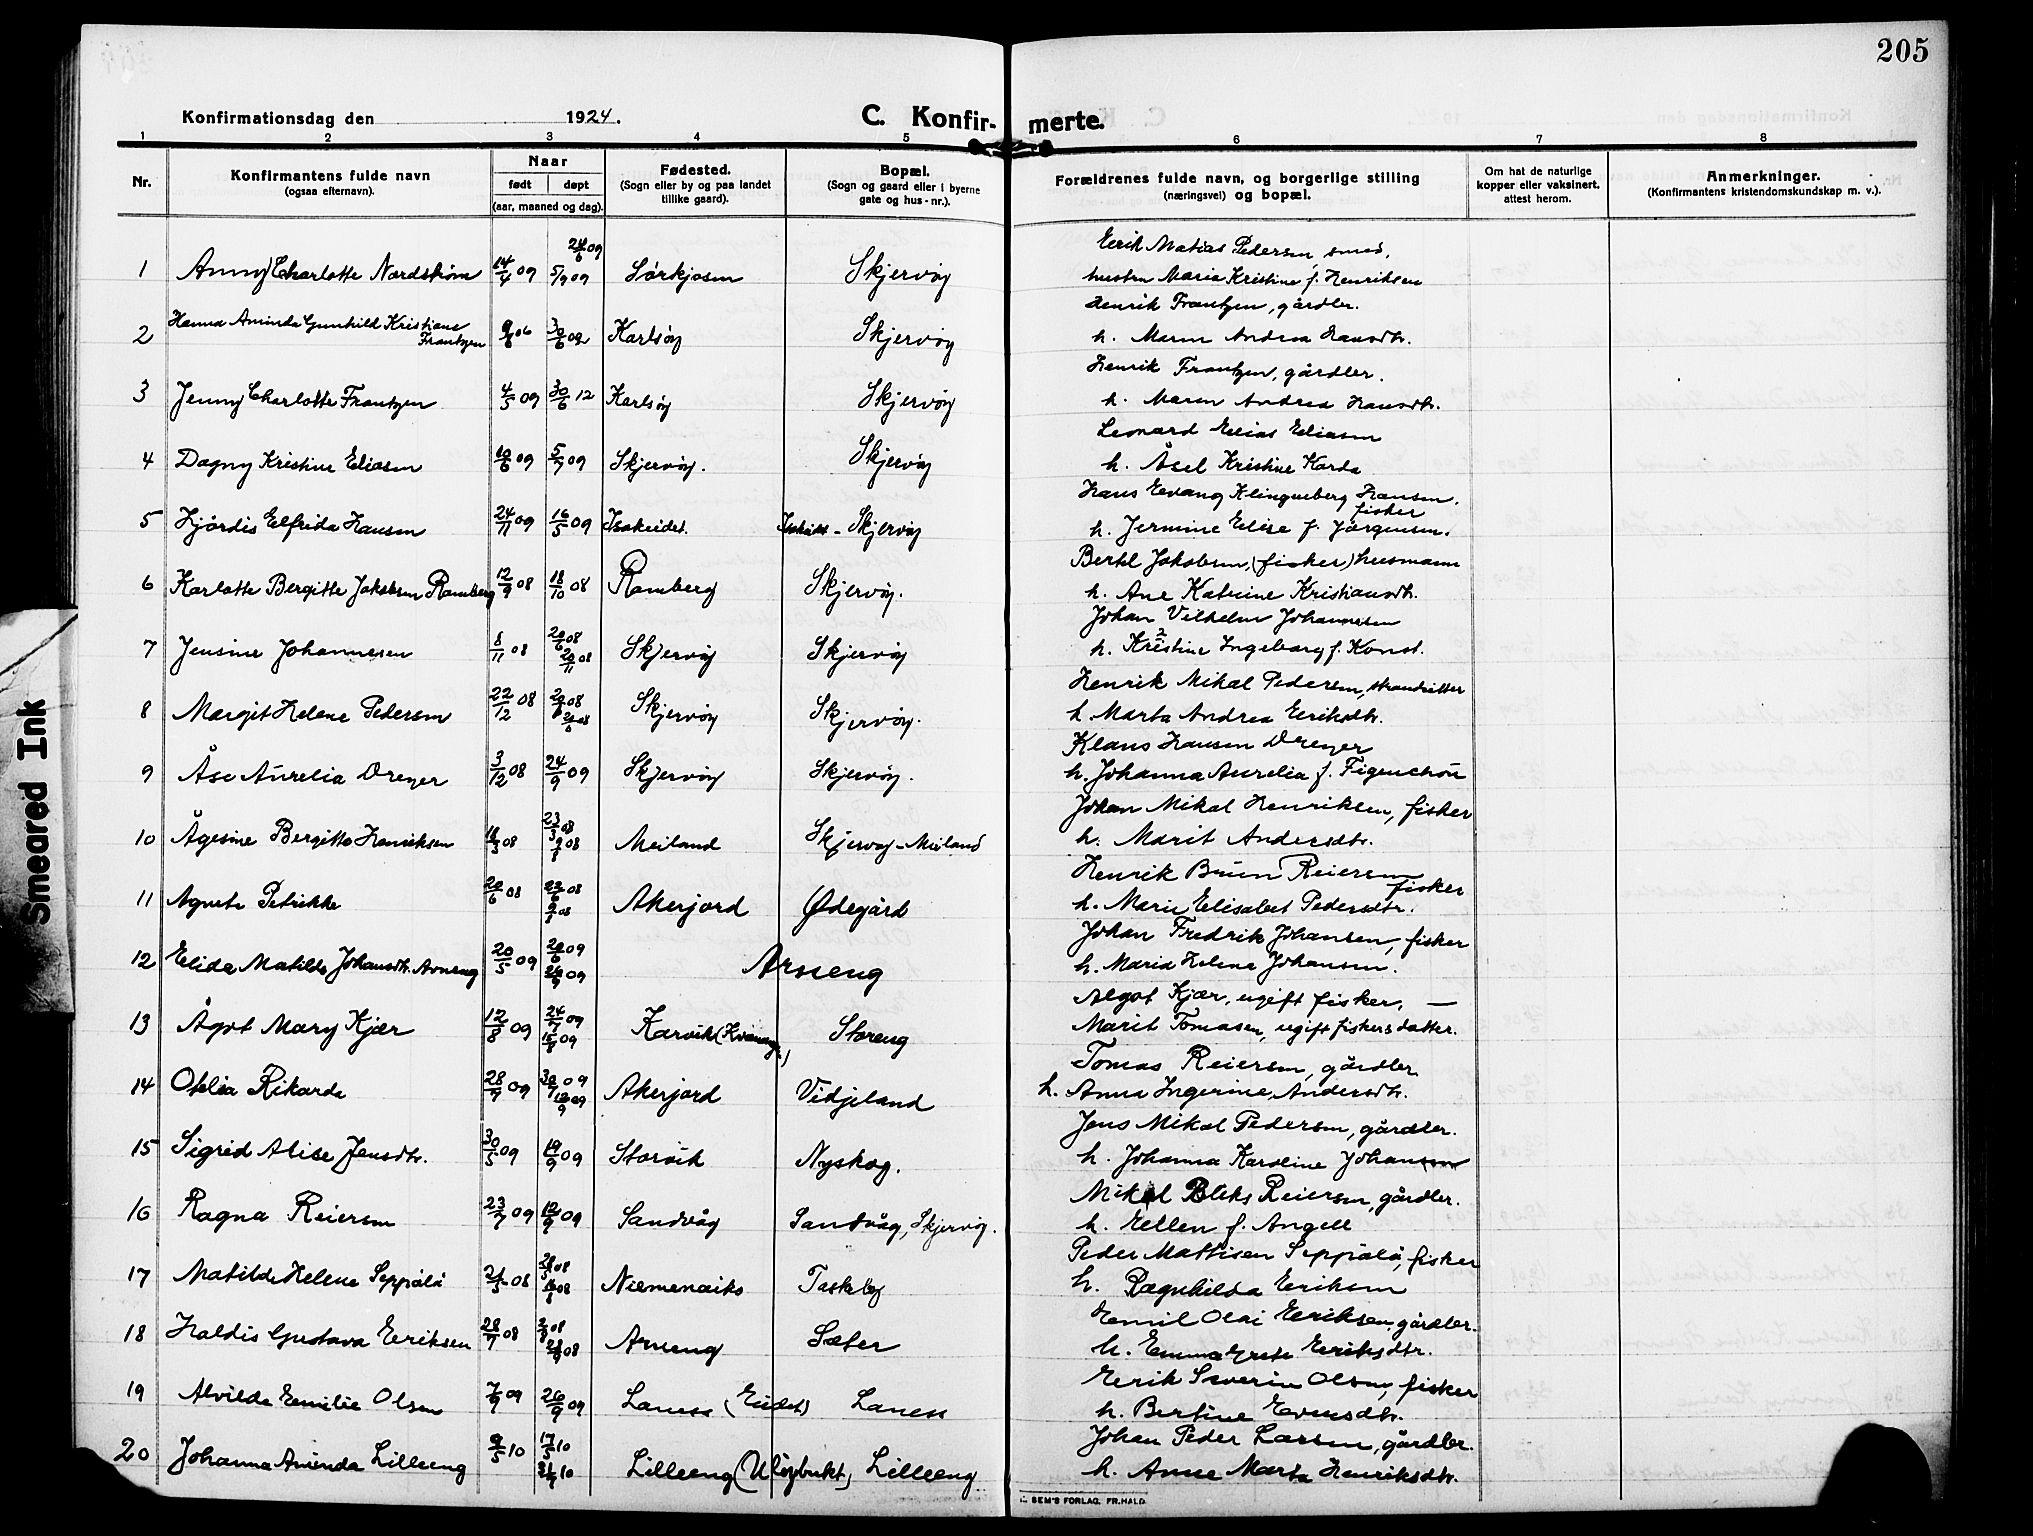 205
Konfirmationsdag den 1924.
C. Konfir- merte.
1 2 3 4 5 6 7 8
Nr.
Konfirmantens fulde navn
(ogsaa efternavn).
Naar
født døpt
(aar, maaned og dag).
Fødested.
(Sogn eller by og paa landet
tillike gaard).
Bopæl.
(Sogn og gaard eller i byerne
gate og hus-nr.).
Forældrenes fulde navn, og borgerlige stilling
(næringsvei) og bopæl.
Om hat de naturlige
kopper eller vaksinert.
attest herom.
Anmerkninger.
(Konfirmantens kristendomskundskap m. v.).
Eerik Matias Pedersen, smed,
24/6 09
1 Anny Charlotte Nordstrøm 14/4 09 5/9 09 Sørkjosen Skjervøy hustru Maria Kristine f. Henriksen
Henrik Frantzen, gårdbr.
2 Hanna Aminda Gunhild Kristiane Frantzen 9/6 06 30/6 09 Karlsøy Skjervøy
h. Maren Andrea Hansdtr.
Henrik Frantzen, gårdbr.
3 Jenny Charlotte Frantzen 4/5 09 30/6 12 Karlsøy Skjervøy
h. Maren Andrea Hansdtr.
Leonard Elias Eliasen
4 Dagny Kristine Eliasen 10/6 09 5/7 09 Skjervøy. Skjervøy
h. Åsel Kristine Karda
Hans Edvang Klingenberg Hansen,
fisker
5 Hjördis Elfrida Hansen 24/11 09 16/5 09 Isakeidet. Isakeidet - Skjervøy
h. Jermine Elise f. Jörgensen.
Bertel Jakobsen, (fisker) husmann
6 Karlotte Bergitte Jakobsen Ramberg 12/9 08 18/10 08 Ramberg Skjervøy.
h. Ane Katrine Kristiansdtr.
Johan Vilhelm Johannesen
7 Jensine Johannesen 8/11 08 20/11 08 Skjervøy Skjervøy
h. Kristine Ingeborg f. Konst.
Henrik Mikal Pedersen, strandsitter
8 Margit Helene Pedersen 22/12 08 Skjervøy Skjervøy.
h. Marta Andrea Eeriksdtr.
Klaus Hansen Dreyer
9 Åse Aurelia Dreyer 3/12 08 24/9 09 Skjervøy Skjervøy.
h. Johanna Aurelia f. Figenschou
Johan Mikal Henriksen, fisker
10 Ågesine Bergitte Henriksen 18/3 08 23/3 08 9/8 08 Meiland Skjervøy - Meiland
h. Marit Andersdtr.
Henrik Bruun Reiersen
fisker
11 Agnete Petrikke 20/6 08 23/6 08 9/8 08 Akerjord Ødegård
h. Marie Elisabet Pedersdtr.
Johan Fredrik Johansen, fisker
12 Elida Matilde Johansdtr. Arneng 20/5 09 20/6 09 24/9 09 Arneng
h. Maria Helene Johansen.
Algot Kjær, ugift fisker, —
13 Ågot Mary Kjær 12/8 09 24/7 09 15/8 09 Karvik (Kvænang.) Storeng
Marit Tomasen, ugift fiskersdatter.
Tomas Reiersen, gårdbr
14 Otelia Rikarda 28/7 09 30/7 09 12/9 09 Akerjord Vidjeland
h. Anna Ingerine Andersdtr.
Jens Mikal Pedersen, gårdbr.
15 Sigrid Alise Jensdtr. 30/5 09 19/9 09 Storvik Nyskog.
h. Johanna Karoline Johansen
Mikal Bleks Reiersen, gårdbr.
16 Ragna Reiersen 23/7 09 12/9 09 Sandvåg Sandvåg, Skjervøy.
h. Ellen f. Angell
Peder Mattisen Seppälä, fisker
17 Matilde Helene Seppälä 21/5 08 28/5 08 Niemenaiko Taskeby
h. Ragnhilda Eeriksen
Emil Olai Eeriksen, gårdbr.
18 Haldis Gustava Eeriksen 28/7 08 Arneng Sæter
h. Emma Grete Eeriksdtr.
Eerik Severin Olsen, fisker
19 Alvilda Emilie Olsen 7/9 09 26/9 09 Laness (Eidet) Laness
h. Bertine Evensdtr.
Johan Peder Larsen, gårdbr.
20 Johanna Aminda Lilleeng 9/5 10 17/5 10 Lilleeng (Uløybukt) Lilleeng
h. Anne Marta Henriksdtr.
SEM'S FORLAG. FR.HALD
Smeared Ink